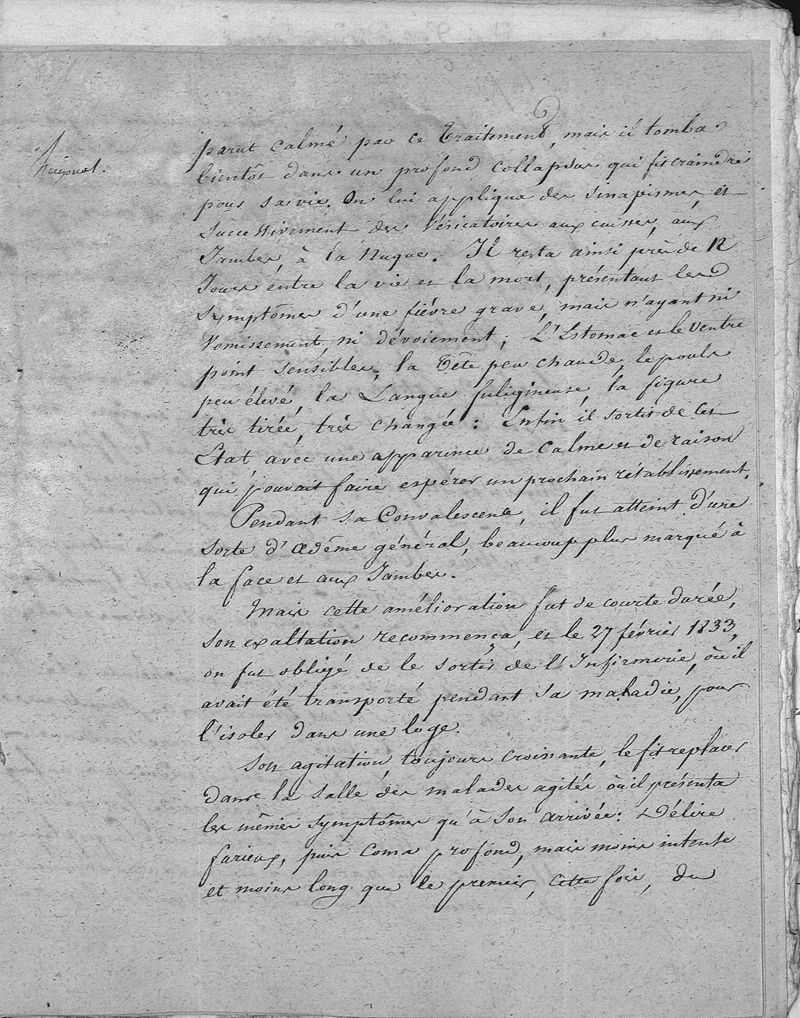 parut calmé par ce traitement, mais il tomba
bientôt dans un profond collapsus qui fit craindre
pour sa vie. On lui appliqua des Sinapismes, et
successivement des Vésicatoires aux cuisses, aux
Jambes, à la Nuque. Il resta ainsi près de 12
Jours entre la vie et la mort, présentant les
symptômes d'une fièvre grave, mais n'ayant ni
Vomissement, ni dévoiement; L'Estomac et le Ventre
point sensibles, la tête peu chaude, le pouls
peu élevé, la Langue fuligineuse, la figure
très tirée, très changée: Enfin il sortit de cet
Etat avec une apparence de calme et de raison
qui pouvait faire espérer un prochain rétablissement.
Pendant sa Convalescence, il fut atteint d'une
sorte d'œdême général, beaucoup plus marqué à
la face et aux Jambes.
Mais cette amélioration fut de courte durée,
son exaltation recommença, et le 27 février 1833,
on fut obligé de le sortir de l'Infirmerie, où il
avait été transporté pendant sa maladie, pour
l'isoler dans une loge.
Son agitation, toujours croissante, le fit replacer
dans la salle des malades agités où il présenta
les mêmes symptômes qu'à son arrivée: Délire
furieux, puis coma profond, mais moins intense
et moins long que le premier, cette fois, du